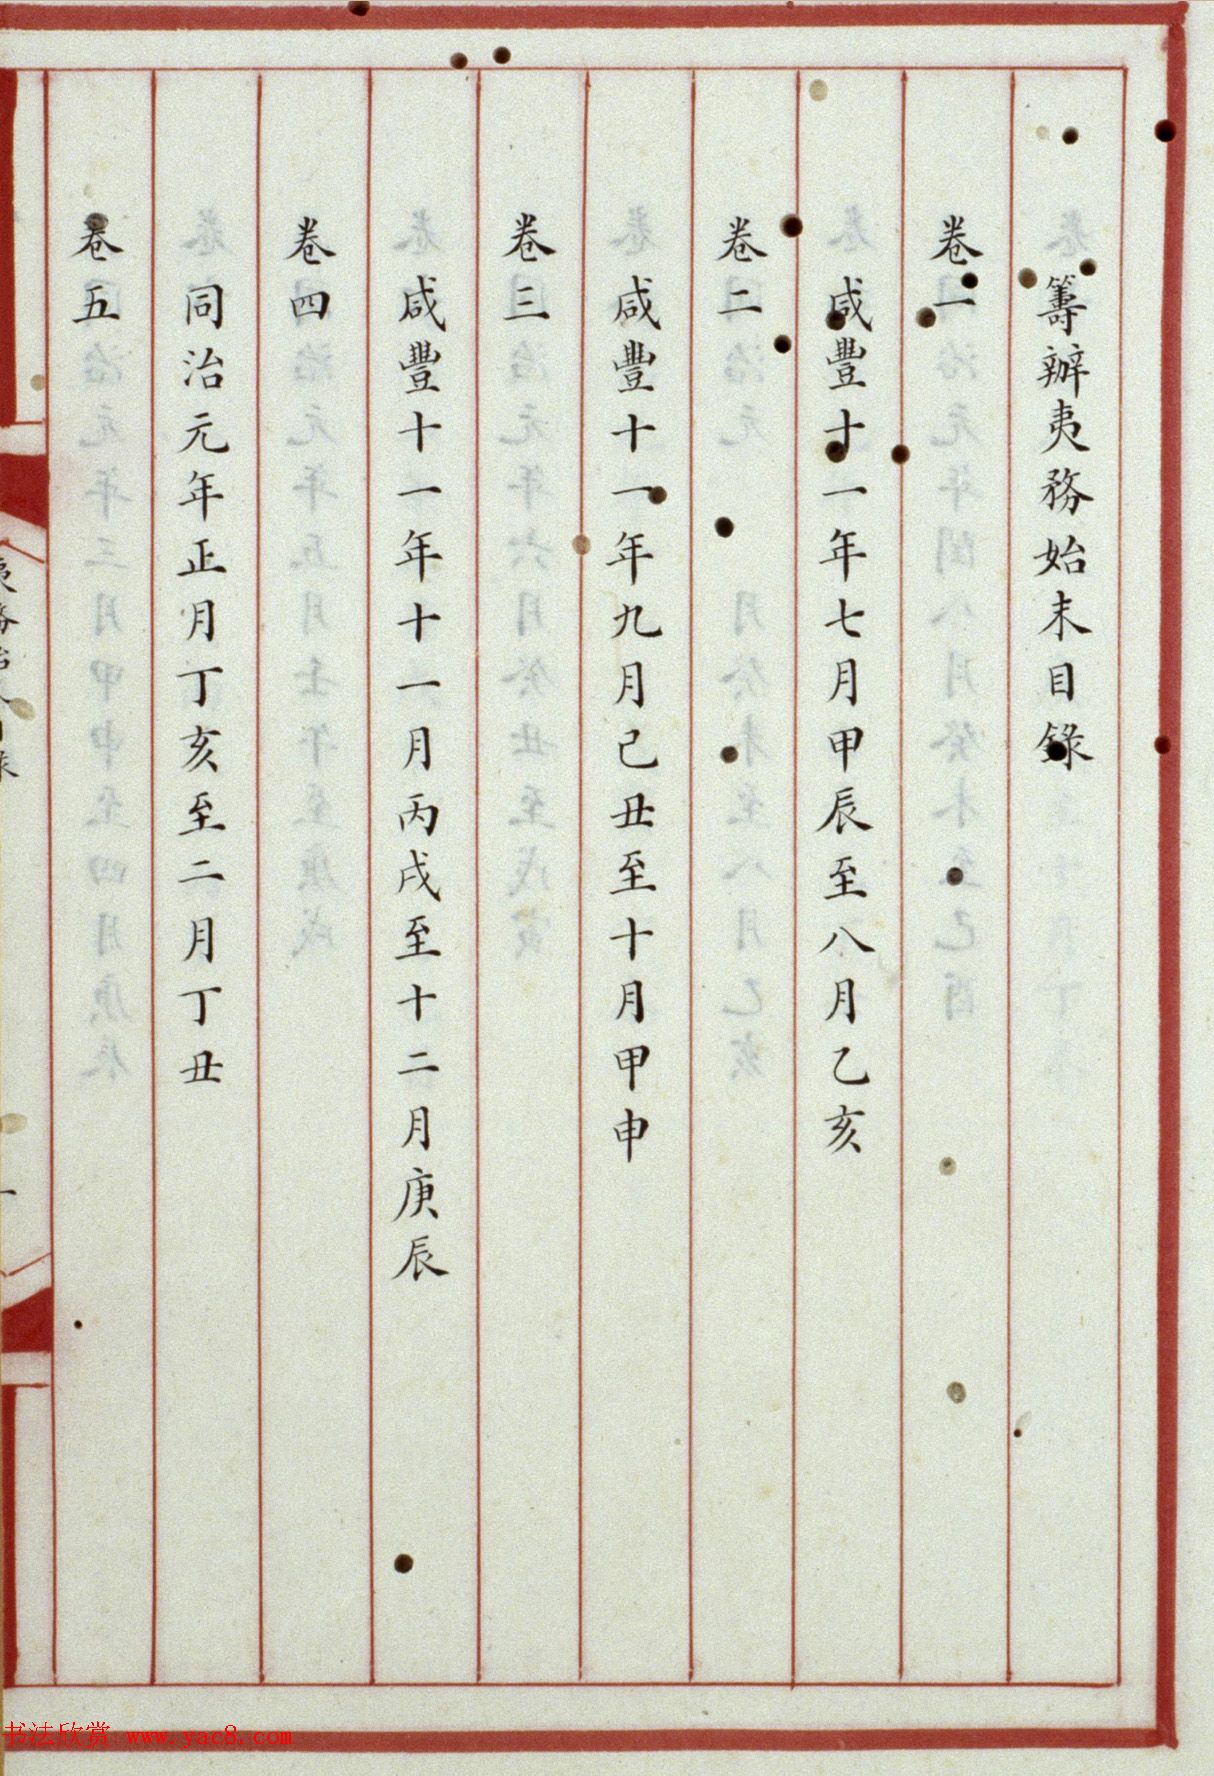 籌辦夷務始末目錄
卷一
咸豐十一年七月甲辰至八月乙亥
卷二
咸豐十一年九月己丑至十月甲申
卷三
咸豐十一年十一月丙戌至十二月庚辰
卷四
同治元年正月丁亥至二月丁丑
卷五
书法欣赏 www.yac8.com